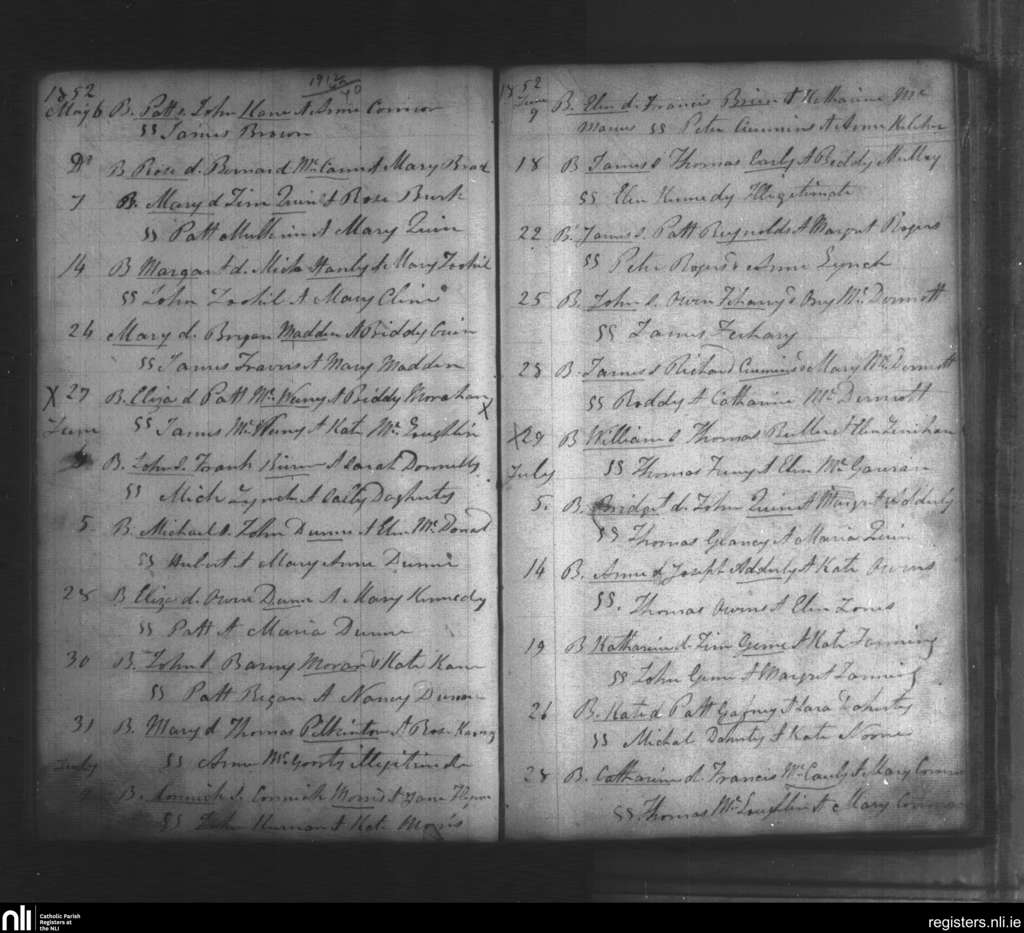 1852
May 6 B. Patt s. John Kane & Anne Connor
SS James Brown
B Rose d. Bernard Mc Cann & Mary Brad
7 B. Mary d Tim Quin & Rose Burk
SS Patt Mulkrin & Mary Quin
14 B Margaret d. Mick Hanly & Mary Toohil
SS John Toohil & Mary Cline
24 Mary d. Bryan Madden & Biddy Guin
SS James Travers & Mary Madden
X 27 B. Eliza d Patt Mc Weeny & Biddy Morahan X
June SS James Mc Weeny & Kate Mc Loughlin
B. John s. Frank Birn & Sarah Donnelly
SS Mich Lynch & Cicily Dogherty
5. B. Michael s. John Dunne & Elen Mc Donal
SS Hubert & Mary Anne Dunne
28 B Eliza d. Owen Dunn & Mary Kennedy
SS Patt & Maria Dunne
30 B. John s Barny Moran & Kate Kane
SS Patt Regan & Nancy Dunne
31 B. Mary d Thomas Pilkinton & Rose
July SS Anne Mc
B. Cormick s. Cormick Morris & Jane Flynn
SS John Kurnan & Kate Morris
1852
June 9 B. Elen d. Francis Brien & Katharine Mc
Manus SS Peter Cummins & Anne Kilcher
18 B James s Thomas Early & Biddy Mulley
SS Elen Kennedy Illigetimate
22 B. James s. Patt Reynolds & Margret Rogers
SS Peter Rogers & Anne Lynch
25 B. John s. Owen & Ony Mc Dermott
SS James
28 B. James s Richard Cummins & Mary Mc Dermott
SS Roddy & Catharine Mc Dermott
X 29 B William s Thomas Butler & Elen Lenihan
July SS Thomas & Elen Mc Gauran
5. B. Bridget d. John Quin & Margret Adderly
SS Thomas Glancy & Maria Quin
14 B. Anne d Joseph Adderly & Kate Owens
SS. Thomas Owens & Elen Jones
19 B Katharine d. Tim & Kate Fanning
SS John & Margret Fanning
26 B. Kate d Patt Gafney & Sara Doherty
SS Michal Doherty & Kate Noone
28 B. Catharine d. Francis Mc Cauly & Mary
SS Thomas Mc Loughlin & Mary
nli Catholic Parish
Registers at
the NLI
registers.nli.ie